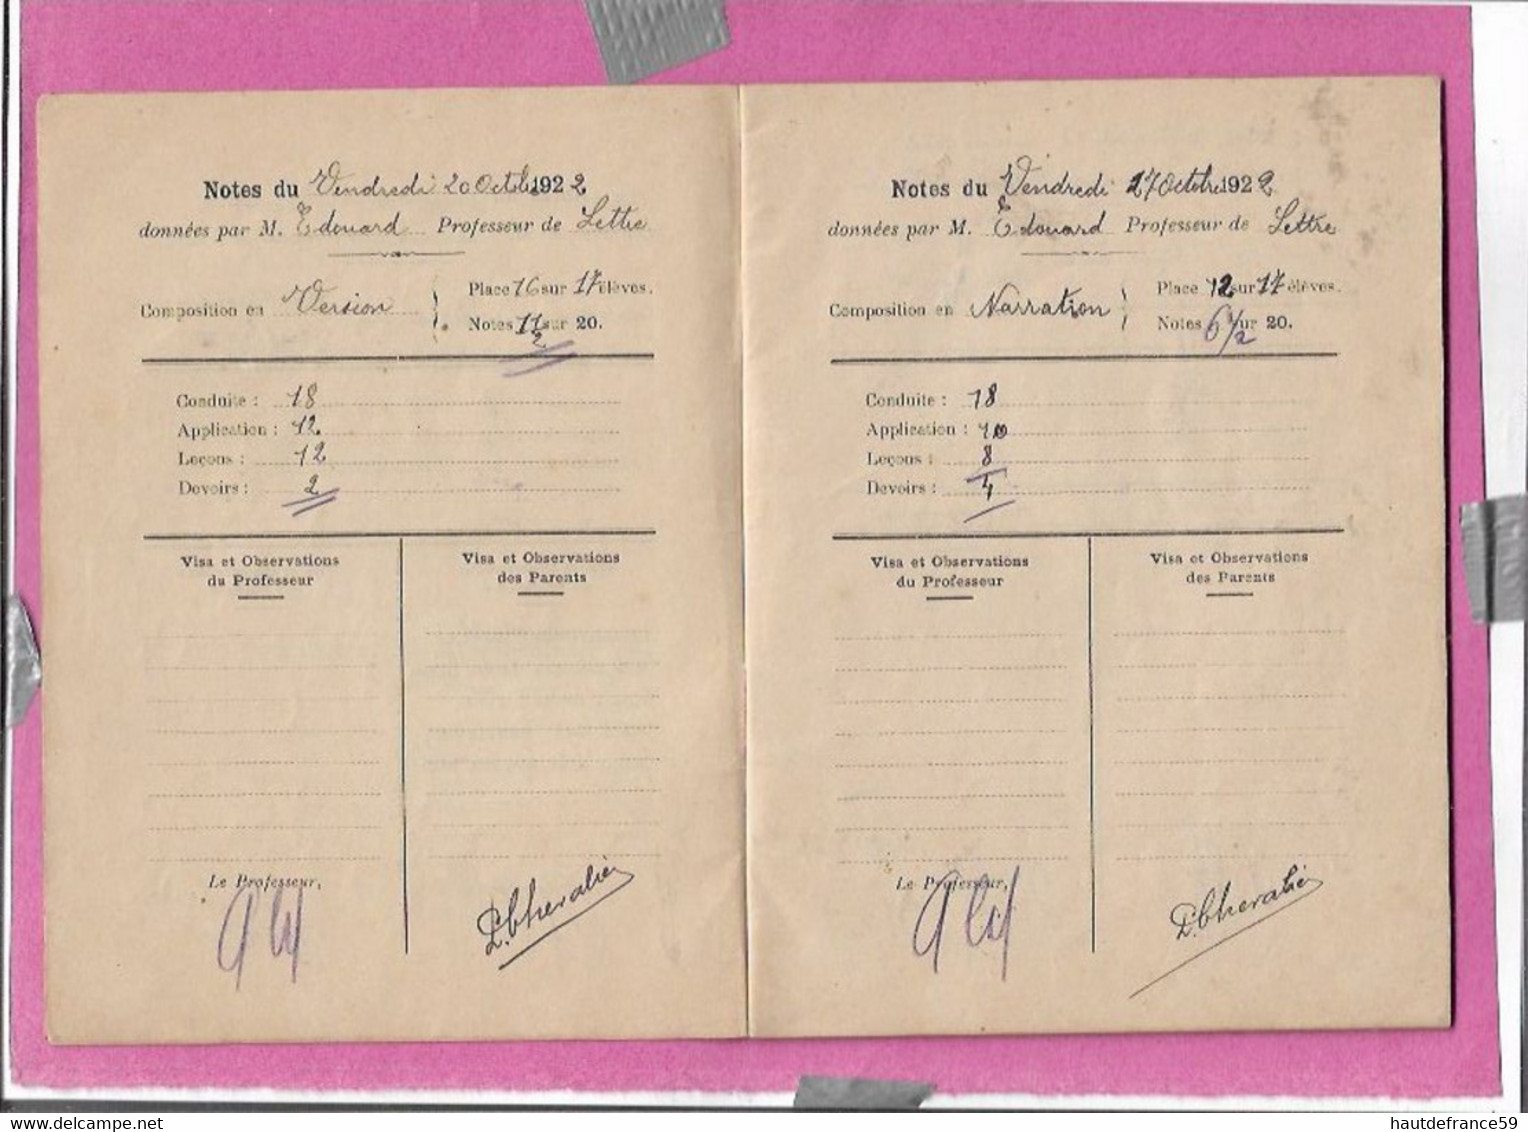 Notes du Vendredi 20 Octobre 1922
données par M. Edouard Professeur de Lettre
Composition en Version
Place 16 sur 17 élèves.
Notes 11/2 sur 20.
Conduite : 18
Application : 12
Leçons : 12
Devoirs : 2
Visa et Observations
du Professeur
Visa et Observations
des Parents
Le Professeur,
Chevalier
Notes du Vendredi 27 Octobre 1922
données par M. Edouard Professeur de Lettre
Composition en Narration
Place 12 sur 17 élèves.
Notes 6 1/2 sur 20.
Conduite : 18
Application : 10
Leçons : 8
Devoirs : 4
Visa et Observations
du Professeur
Visa et Observations
des Parents
Le Professeur,
Chevalier
www.delcampe.net
hautdefrance59